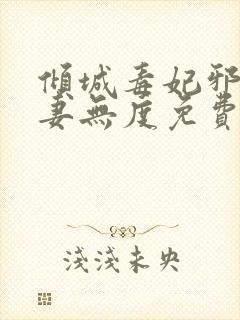 傾城毒妃邪
妻無度免費
淺淺未央